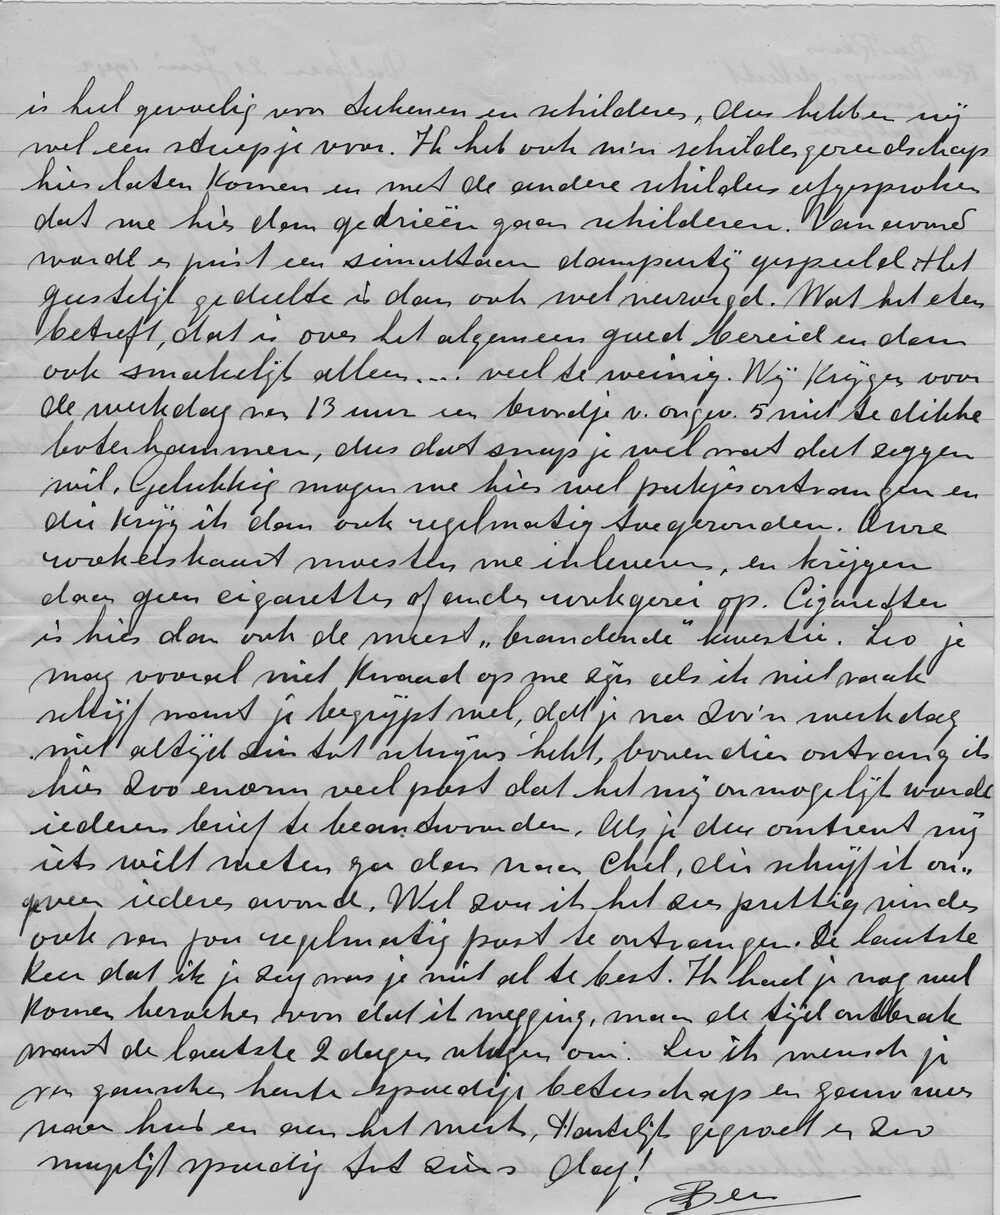 is heel gevoelig voor teekenen en schilderen, dus hebben wij
wel een streepje voor. Ik heb ook m'n schildersgereedschap
hier laten komen en met de andere schilders afgesproken
dat we hier dan gedrieën gaan schilderen. Vanavond
wordt er juist een simultaan damparty gespeeld. Het
geestelijk gedeelte is dan ook wel verzorgd. Wat het eten
betreft, dat is over het algemeen goed bereid en dan
ook smakelijk alleen.... veel te weinig. Wij krijgen voor
de werkdag van 13 uur een broodje v. ongev. 5 niet te dikke
boterhammen, dus dat snap je wel wat dat zeggen
wil. Gelukkig mogen we hier wel pakjes ontvangen en
die krijg ik dan ook regelmatig toegezonden. Onze
rookerskaart moesten we inleveren, en krijgen
daar geen cigaretten of ander rookgerei op. Cigaretten
is hier dan ook de meest „brandende" kwestie. Leo je
mag vooral niet kwaad op me zijn als ik niet vaak
schrijf want je begrijpt wel, dat je na zoo'n werkdag
niet altijd zin tot schrijven hebt, bovendien ontvang ik
hier zoo enorm veel post dat het mij onmogelijk wordt
iederen brief te beantwoorden. Als je dus omtrent mij
iets wilt weten ga dan naar Chel, die schrijf ik on„
geveer iederen avond. Wel zou ik het zeer prettig vinden
ook van jou regelmatig post te ontvangen. De laatste
keer dat ik je zag was je niet al te best. Ik had je nog wel
komen bezoeken voor dat ik wegging, maar de tijd ontbrak
want de laatste 2 dagen vlogen om. Leo ik wensch je
van ganscher harte spoedige beterschap en gauw weer
naar huis en aan het werk. Hartelijk gegroet en zoo
mogelijk spoedig tot ziens Dag!
Ben